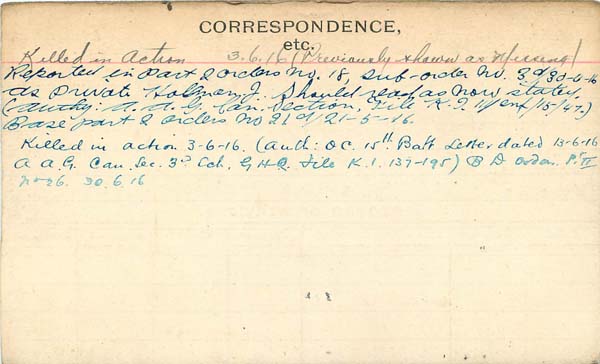 CORRESPONDENCE,
etc.
Killed in Action 3.6.16 (Previously shown as Missing)
Reported in Part 2 orders No. 18, sub-order No. 3 d/30-4-16
as Private Holman J. Should read as now stated.
(Authy: A.A.G. Can. Section, File K.I. 11/enf/15/47.)
Base part 2 orders No 21 d/ 21-5-16.
Killed in action 3-6-16. (Auth: O.C. 15th Batt Letter dated 13-6-16
A A.G. Can. Sec. 3rd Ech. G.H.Q. File K.1. 137-195) B D Orders Pt II
No 26. 30.6.16